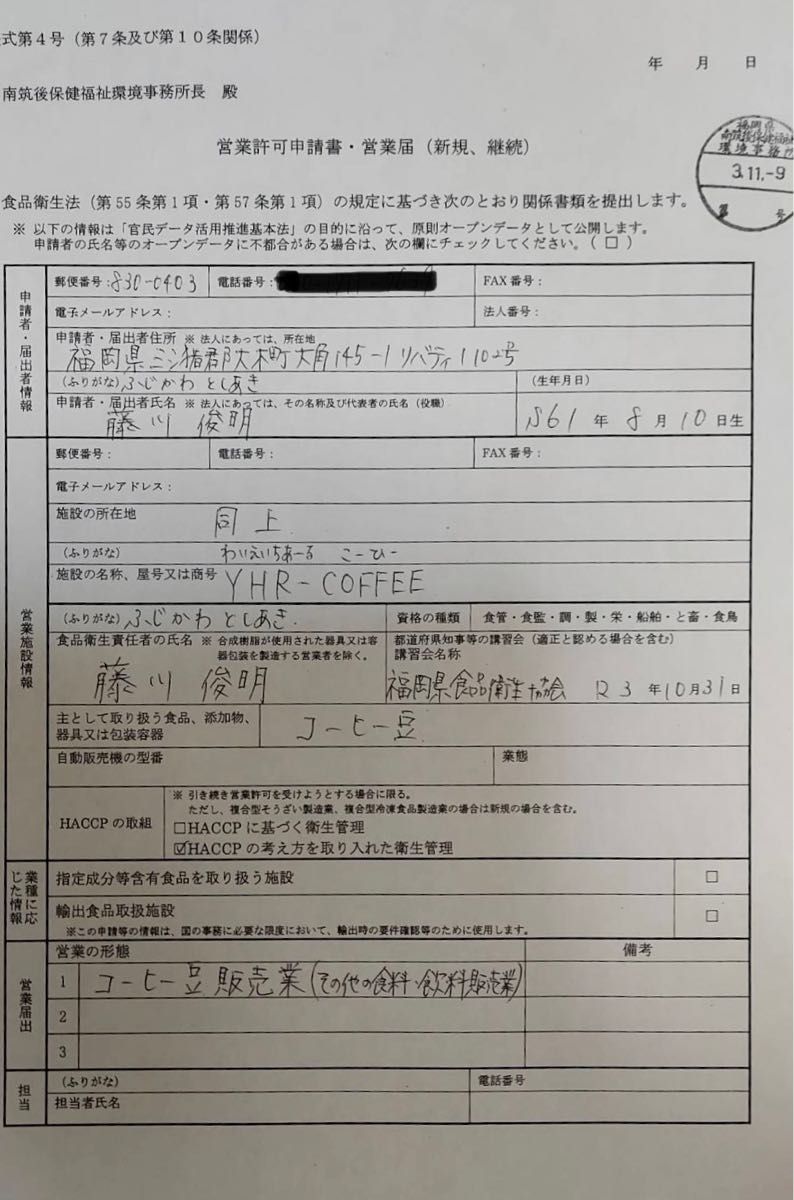 式第４号（第７条及び第１０条関係）
年　月　日
南筑後保健福祉環境事務所長　殿
営業許可申請書・営業届（新規、継続）
福岡県
南筑後保健福祉
環境事務所
3.11.-9
第　号
食品衛生法（第55条第１項・第57条第１項）の規定に基づき次のとおり関係書類を提出します。
※ 以下の情報は「官民データ活用推進基本法」の目的に沿って、原則オープンデータとして公開します。
申請者の氏名等のオープンデータに不都合がある場合は、次の欄にチェックしてください。（□）
申請者・届出者情報
郵便番号：830-0403　電話番号：　FAX番号：
電子メールアドレス：　法人番号：
申請者・届出者住所 ※ 法人にあっては、所在地
福岡県三潴郡大木町大角145-1 リバティ1102号
（ふりがな）ふじかわ としあき　（生年月日）
申請者・届出者氏名 ※ 法人にあっては、その名称及び代表者の氏名（役職）
藤川 俊明　S61年 8月10日生
営業施設情報
郵便番号：　電話番号：　FAX番号：
電子メールアドレス：
施設の所在地
同上
（ふりがな）わいえいちあーる こーひー
施設の名称、屋号又は商号 YHR-COFFEE
（ふりがな）ふじかわ としあき　資格の種類　食管・食監・調・製・栄・船舶・と畜・食鳥
食品衛生責任者の氏名 ※ 合成樹脂が使用された器具又は容
器包装を製造する営業者を除く。
藤川 俊明
都道府県知事等の講習会（適正と認める場合を含む）
講習会名称
福岡県食品衛生協会 R3年10月31日
主として取り扱う食品、添加物、
器具又は包装容器
コーヒー豆
自動販売機の型番　業態
HACCPの取組
※ 引き続き営業許可を受けようとする場合に限る。
ただし、複合型そうざい製造業、複合型冷凍食品製造業の場合は新規の場合を含む。
□HACCPに基づく衛生管理
☑HACCPの考え方を取り入れた衛生管理
業種に応じた情報
指定成分等含有食品を取り扱う施設　□
輸出食品取扱施設　□
※この申請等の情報は、国の事務に必要な限度において、輸出時の要件確認等のために使用します。
営業届出
営業の形態　備考
1　コーヒー豆販売業（その他の食料・飲料販売業）
2
3
担当
（ふりがな）　電話番号
担当者氏名